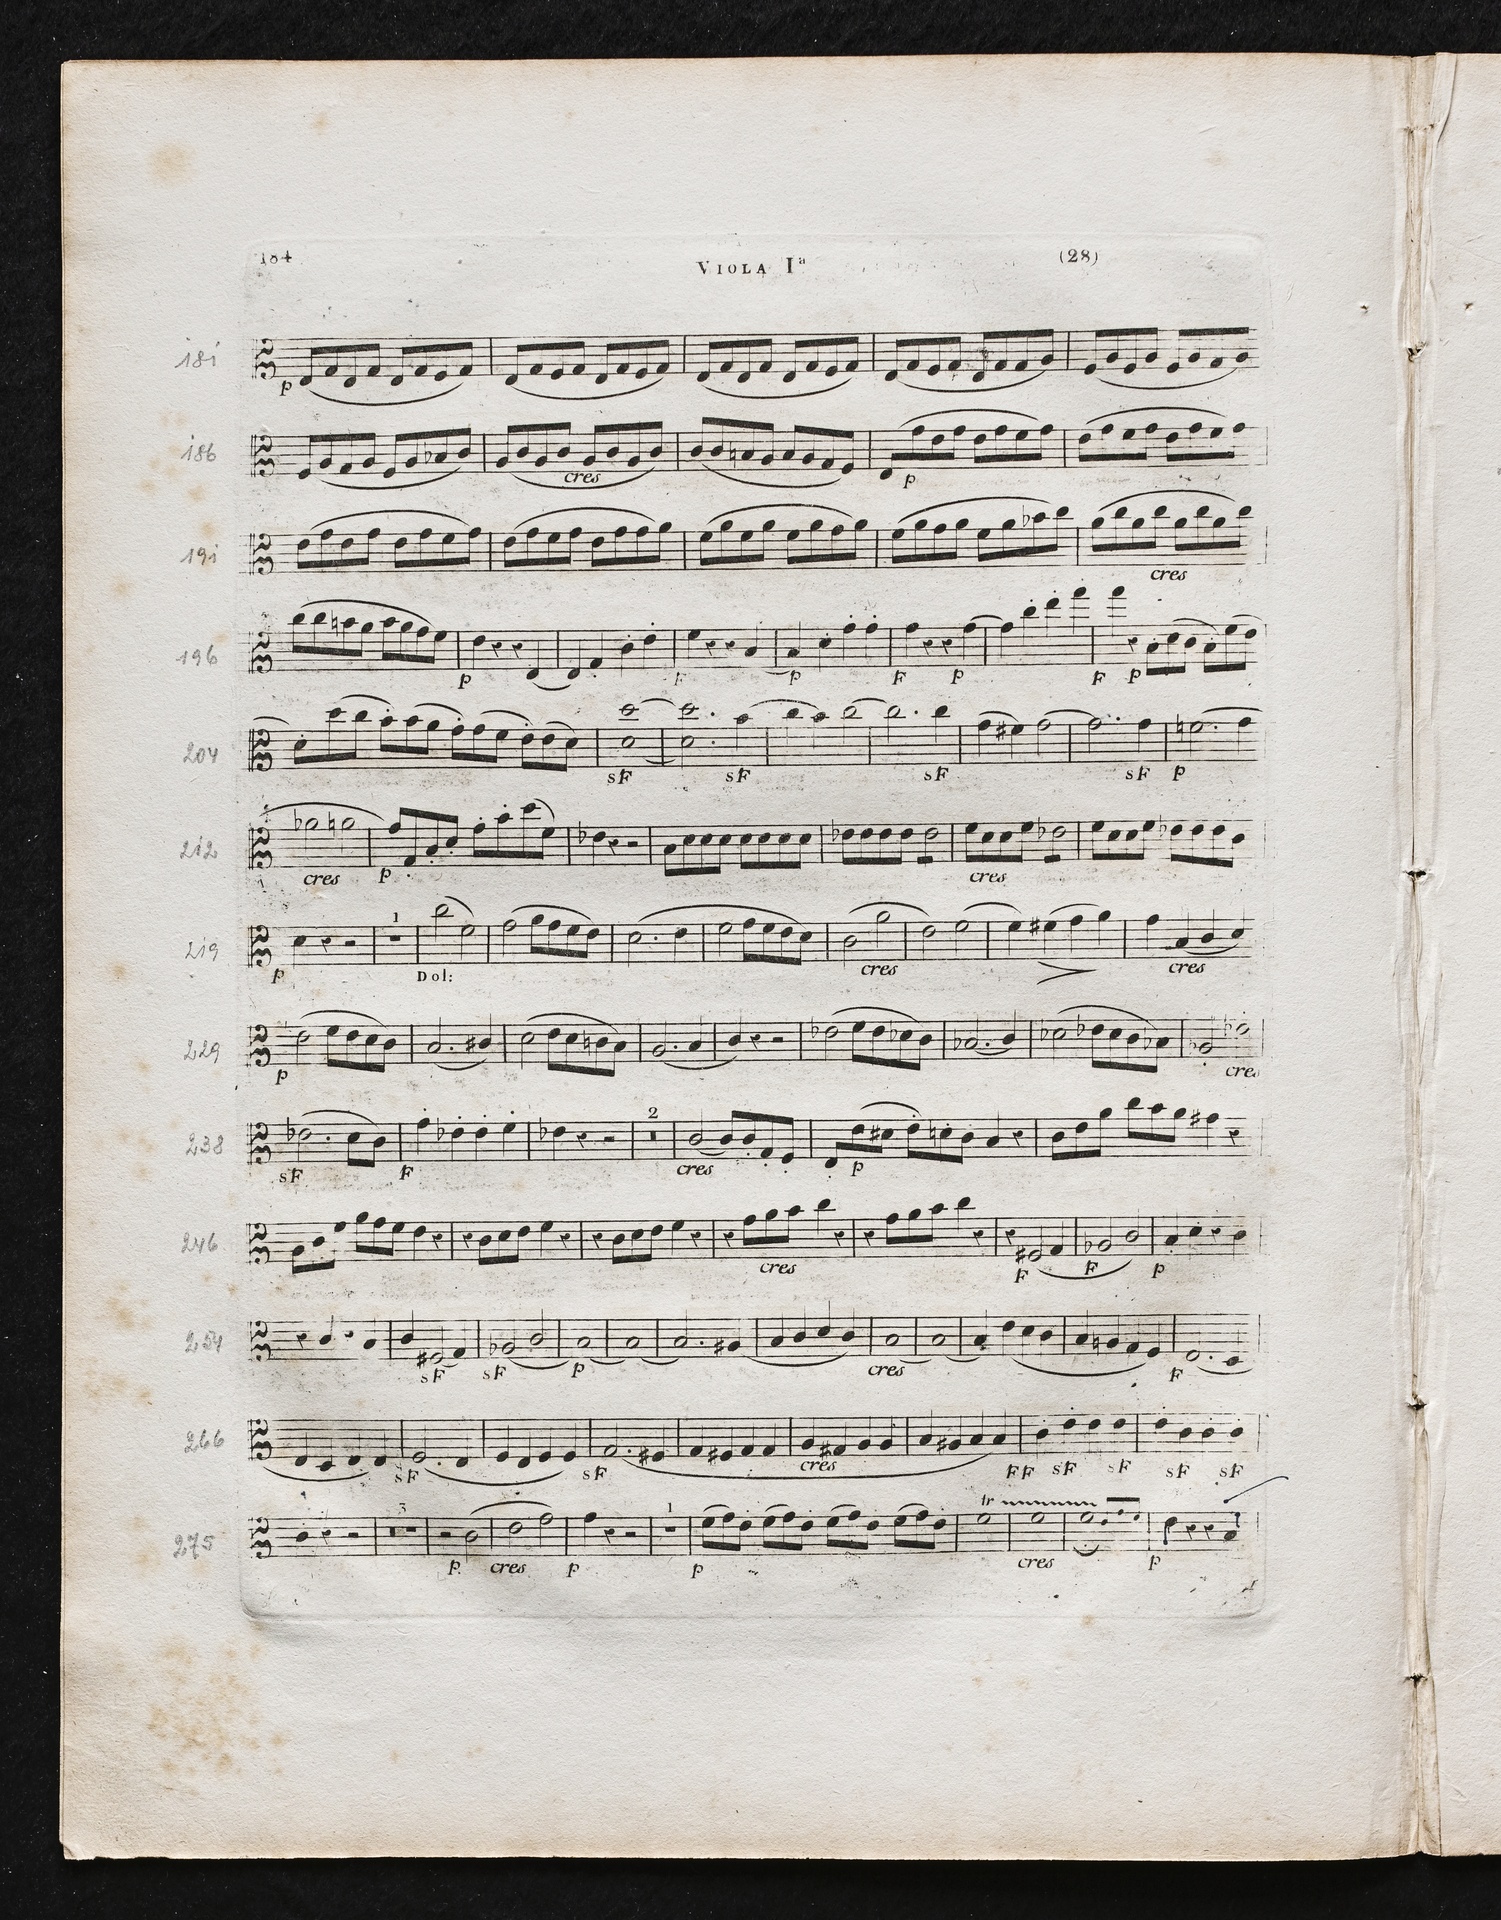 184 VIOLA Iª (28)
181 p
186 cres p
191 cres
196 p F p F p F p
204 sF sF sF sF p
212 cres p cres
219 p 1 Dol: cres cres
229 p cres
238 sF F 2 cres p
246 cres F F p
254 sF sF p cres F
266 sF sF cres FF sF sF sF sF
275 3 p. cres p 1 p tr cres p